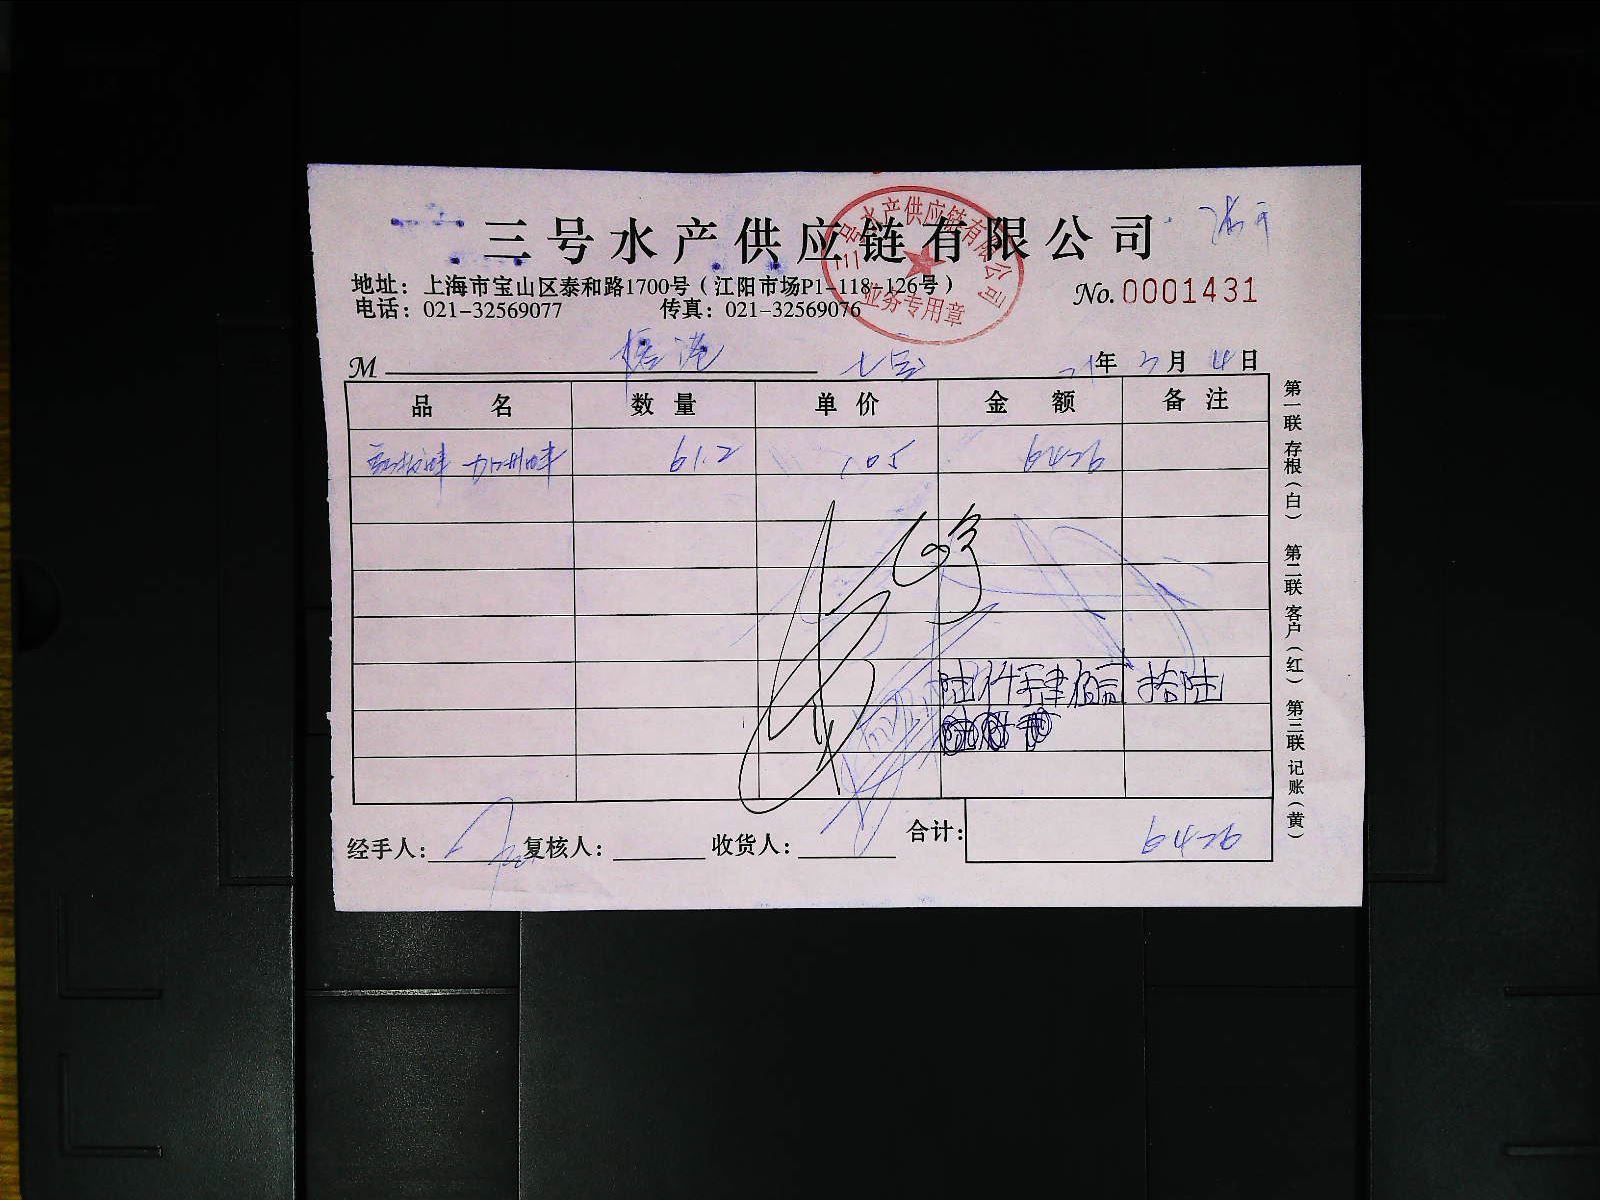 三号水产供应链有限公司
三号水产供应链有限公司
业务专用章
地址：上海市宝山区泰和路1700号（江阳市场P1-118-126号）
电话：021-32569077 传真：021-32569076
No. 0001431
M
21年3月4日
品名 数量 单价 金额 备注
61.2 105 6426
陆仟肆佰贰拾陆
经手人： 复核人： 收货人： 合计： 6426
第一联 存根（白） 第二联 客户（红） 第三联 记账（黄）